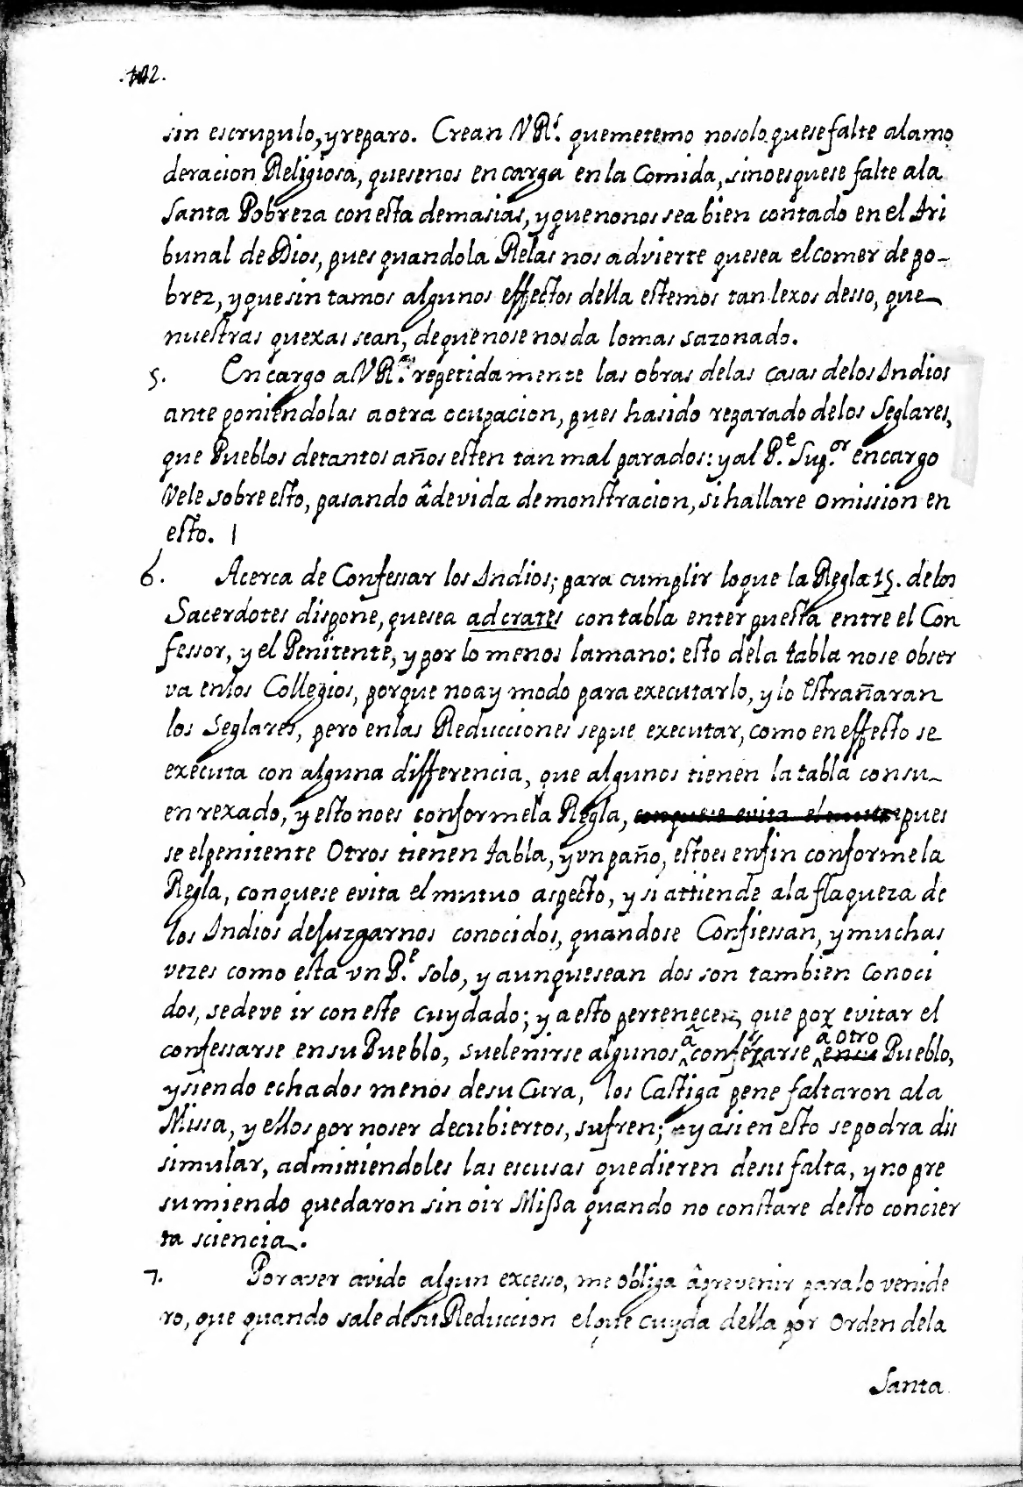 .102.
sin escrupulo, y reparo. Crean VRs. que me temo no solo que se falte a la mo
deracion Religiosa, que se nos encarga en la Comida, sino es que se falte a la
Santa Pobreza con esta demasias, y que no nos sea bien contado en el Tri
bunal de Dios, pues quando la Reglas nos advierte que sea el comer de po-
brez, y que sintamos algunos effectos della estemos tan lexos desso, que
nuestras quexas sean, de que no se nos da lo mas sazonado.
5. Encargo a VRas. repetidamente las obras de las casas de los Indios
ante poniendolas a otra ocupacion, pues ha sido reparado de los Seglares,
que Pueblos de tantos años esten tan mal parados: y al Pe. Supor. encargo
Vele sobre esto, pasando â devida demonstracion, si hallare omission en
esto.
6. Acerca de Confessar los Indios; para cumplir lo que la Regla 15. de los
Sacerdotes dispone, que sea ad crates con tabla enterpuesta entre el Con
fessor, y el Penitente, y por lo menos la mano: esto de la tabla no se obser
va en los Collegios, porque no ay modo para executarlo, y lo Estrañaran
los Seglares, pero en las Reducciones se pue executar, como en effecto se
executa con alguna differencia, que algunos tienen la tabla con su
enrexado, y esto no es conforme la Regla, conque se evita el mutu pues
se el penitente Otros tienen tabla, y vn paño, esto es en fin conforme la
Regla, con que se evita el mutuo aspecto, y si attiende a la flaqueza de
los Indios de Juzgarnos conocidos, quando se Confiessan, y muchas
vezes como esta vn Pe. solo, y aunque sean dos son tambien conoci
dos, se deve ir con este cuydado; y a esto pertenecer, que por evitar el
confessarse en su Pueblo, suelen irse algunos a confesarse a otro en su Pueblo,
y siendo echados menos de su Cura, los Castiga pene faltaron a la
Missa, y ellos por no ser decubiertos, sufren; y asi en esto se podra dis
simular, admitiendoles las escusas que dieren de su falta, y no pre
sumiendo quedaron sin oir Missa quando no constare desto con cier
ta sciencia.
7. Por aver avido algun excesso, me obliga â prevenir para lo venide
ro, que quando sale de su Reduccion el que cuyda della por Orden de la
Santa